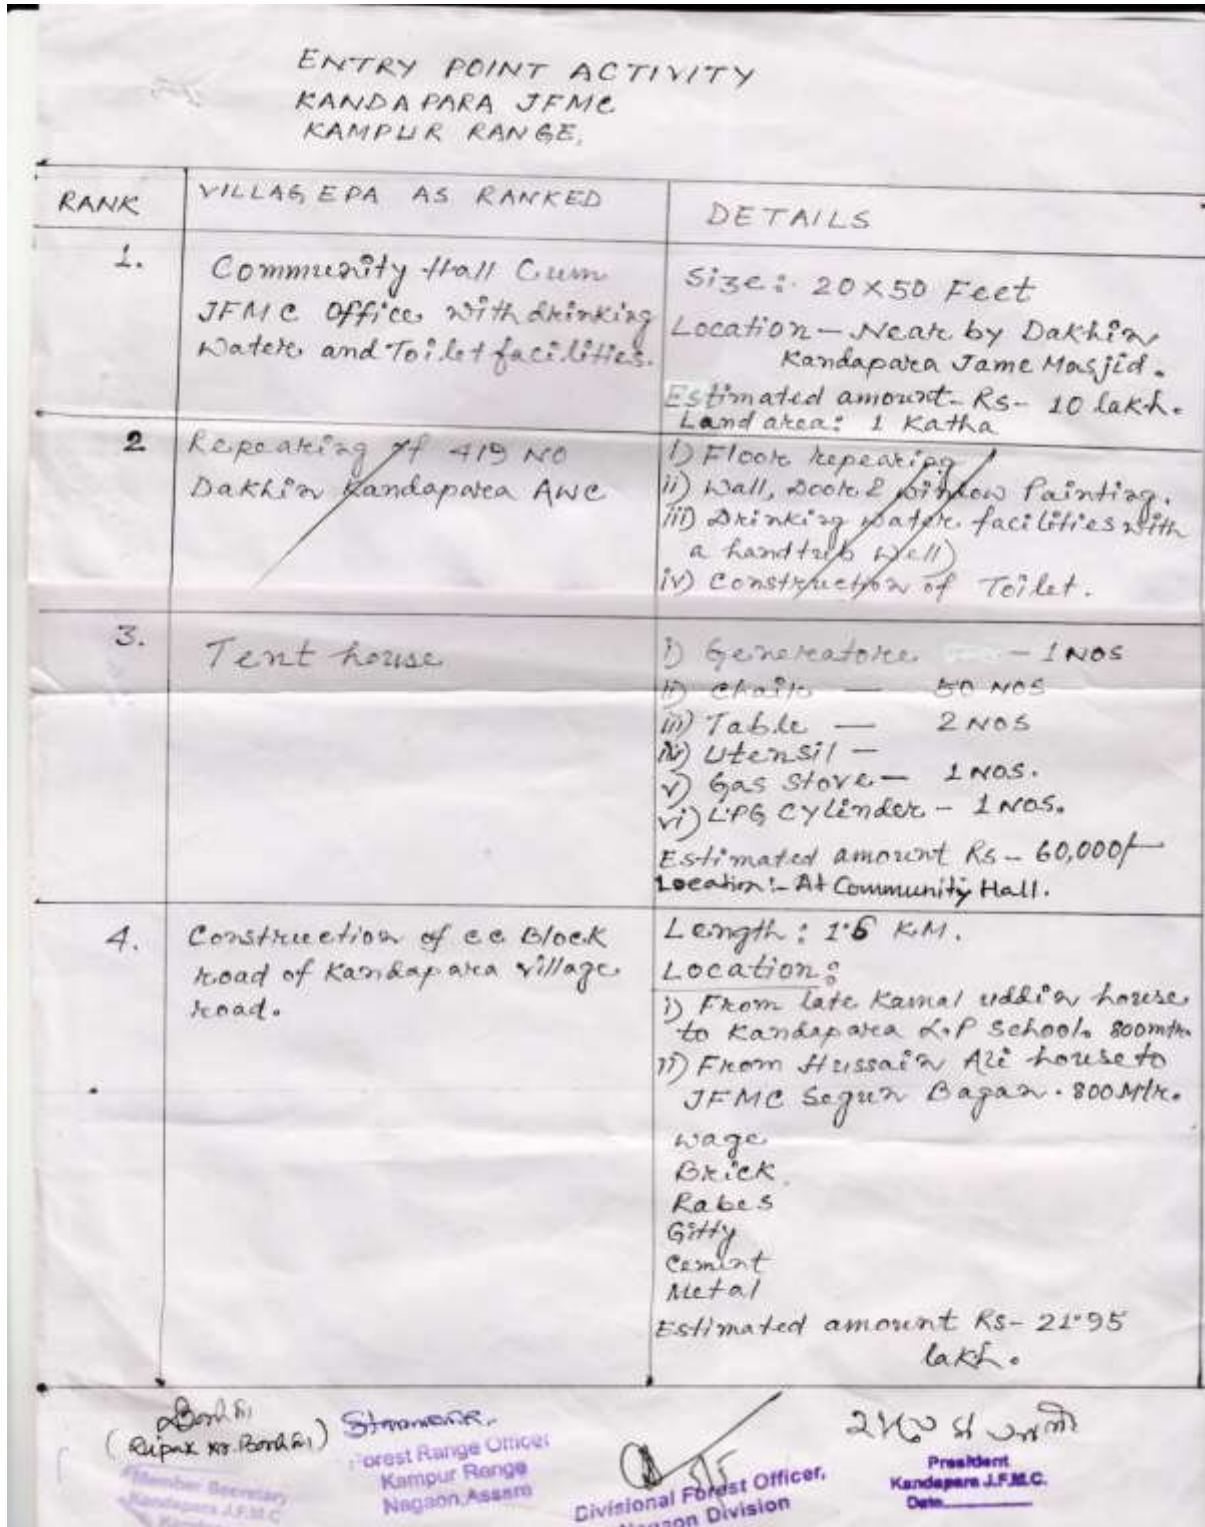 ENTRY POINT ACTIVITY
KANDAPARA JFMC
KAMPUR RANGE,
RANK
VILLAGEPA AS RANKED
DETAILS
1.
Community Hall Cum
JFMC Office with drinking
Water and Toilet facilities.
Size: 20x50 Feet
Location - Near by Dakhin
Kandapara Jame Masjid.
Estimated amount- Rs- 10 lakh.
Land area: 1 Katha
2
Repearing of 419 NO
Dakhin Kandapara AWC
i) Floor repearing
ii) Wall, Door & window Painting.
iii) Drinking water facilities with
a handtub well)
iv) Construction of Toilet.
3.
Tent house
i) Genereatore - 1 NOS
ii) Chair — 50 NOS
iii) Table — 2 NOS
iv) Utensil -
v) Gas Stove - 1 NOS.
vi) LPG Cylinder - 1 NOS.
Estimated amount Rs - 60,000/-
Location:- At Community Hall.
4.
Construction of cc Block
road of Kandapara village
road.
Length: 1.6 KM.
Location:
i) From late Kamal uddin house
to Kandapara L.P School. 800mtr.
ii) From Hussain Ali house to
JFMC Segun Bagan. 800 Mtr.
Wage
Brick
Rabes
Gitty
Cement
Metal
Estimated amount Rs- 21.95
lakh.
(Dipak Kr. Borah)
Member Secretary
Kandapara J.F.M.C
Forest Range Officer
Kampur Range
Nagaon, Assam
Divisional Forest Officer,
Nagaon Division
President
Kandapara J.F.M.C.
Date